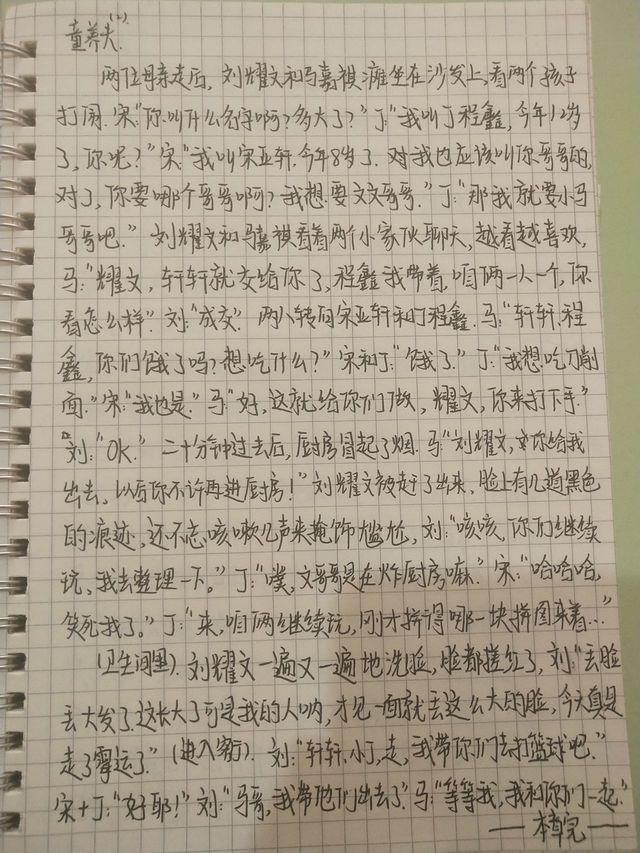 童养夫(2).
两位母亲走后,刘耀文和马嘉祺瘫坐在沙发上,看两个孩子
打闹.宋:"你叫什么名字啊?多大了?"丁:"我叫丁程鑫,今年12岁
了,你呢?"宋:"我叫宋亚轩,今年8岁了.对我也应该叫你哥哥的,
对了,你要哪个哥哥啊?我想要文文哥哥."丁:"那我就要小马
哥哥吧."刘耀文和马嘉祺看着两个小家伙聊天,越看越喜欢,
马:"耀文,轩轩就交给你了,程鑫我带着,咱俩一人一个,你
看怎么样".刘:"成交".两人转向宋亚轩和丁程鑫.马:"轩轩,程
鑫,你们饿了吗?想吃什么?"宋和丁:"饿了."丁:"我想吃刀削
面."宋:"我也是."马:"好,这就给你们做,耀文,你来打下手."
刘:"OK."二十分钟过去后,厨房冒起了烟.马:"刘耀文,你给我
出去,以后你不许再进厨房!"刘耀文被赶了出来,脸上有几道黑色
的痕迹,还不忘咳嗽几声来掩饰尴尬,刘:"咳咳,你们继续
玩,我去整理一下。"丁:"噗,文哥哥是在炸厨房嘛."宋:"哈哈哈,
笑死我了。"丁:"来,咱俩继续玩,刚才拼得哪一块拼图来着..."
(卫生间里).刘耀文一遍又一遍地洗脸,脸都搓红了,刘:"丢脸
丢大发了.这长大了可是我的人呐,才见一面就丢这么大的脸,今天真是
走了霉运了."(进入客厅).刘:"轩轩,小丁,走,我带你们去打篮球吧."
宋+丁:"好耶!"刘:"马哥,我带他们出去了."马:"等等我,我和你们一起."
——本章完——